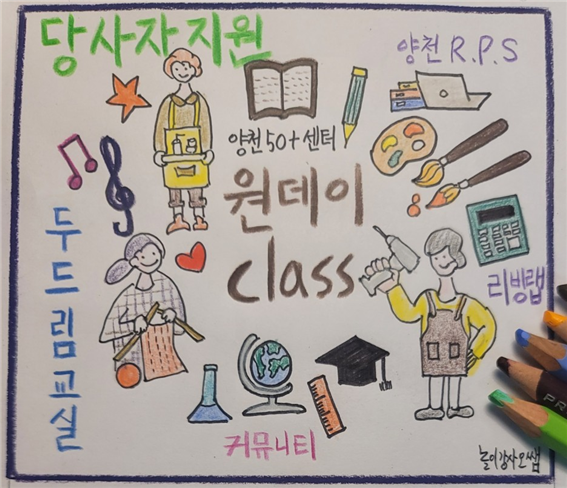 당사자지원
양천 R.P.S
양천50+센터
원데이
class
두드림교실
리빙랩
커뮤니티
놀이강사오쌤